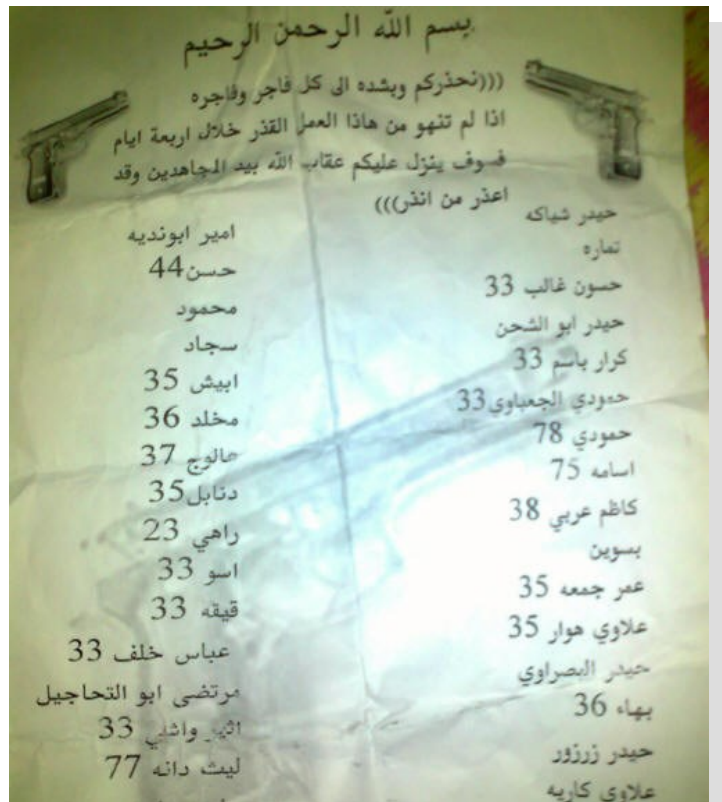 بسم الله الرحمن الرحيم
(((نحذركم وبشده الى كل فاجر وفاجره
اذا لم تنهو من هاذا العمل القذر خلال اربعة ايام
فسوف ينزل عليكم عقاب الله بيد المجاهدين وقد
اعذر من انذر)))
حيدر شياكه
تماره
حسون غالب 33
حيدر ابو الشحن
كرار باسم 33
حمودي الجعباوي33
حمودي 78
اسامه 75
كاظم عربي 38
بسوين
عمر جمعه 35
علاوي هوار 35
حيدر البصراوي
بهاء 36
حيدر زرزور
علاوي كاريه
امير ابونديه
حسن44
محمود
سجاد
ابيش 35
مخلد 36
عالوج 37
دنابل35
راهي 23
اسو 33
قيقه 33
عباس خلف 33
مرتضى ابو التحاجيل
اثير واشلي 33
ليث دانه 77